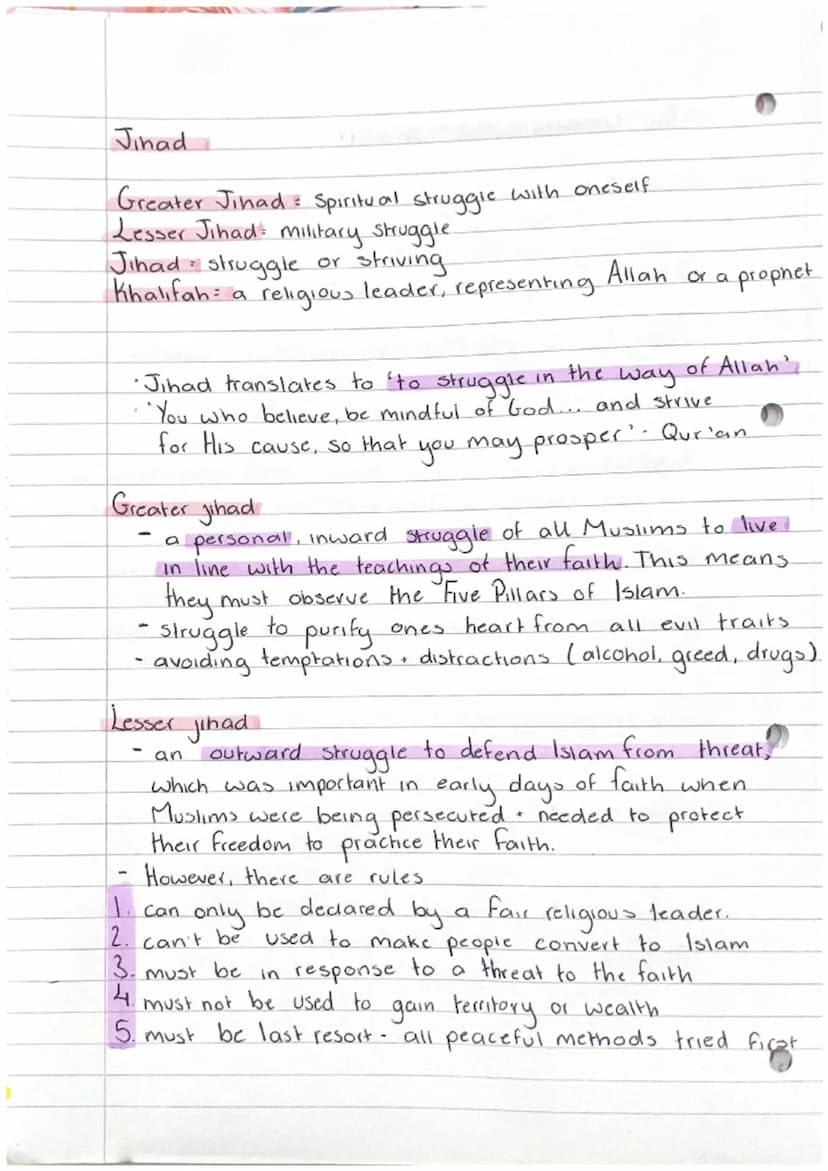 Jihad
Greater Jihad = Spiritual struggle with oneself
Lesser Jihad = military struggle
Jihad = struggle or striving
Khalifah = a religious leader, representing Allah or a prophet
· Jihad translates to 'to struggle in the way of Allah'
· 'You who believe, be mindful of God... and strive
for His cause, so that you may prosper' - Qur'an
Greater jihad
- a personal, inward struggle of all Muslims to live
in line with the teachings of their faith. This means
they must observe the Five Pillars of Islam.
- struggle to purify ones heart from all evil traits
- avoiding temptations + distractions (alcohol, greed, drugs)
Lesser jihad
- an outward struggle to defend Islam from threat,
which was important in early days of faith when
Muslims were being persecuted + needed to protect
their freedom to practice their faith.
- However, there are rules
1. can only be declared by a fair religious leader.
2. can't be used to make people convert to Islam
3. must be in response to a threat to the faith
4. must not be used to gain territory or wealth
5. must be last resort - all peaceful methods tried first